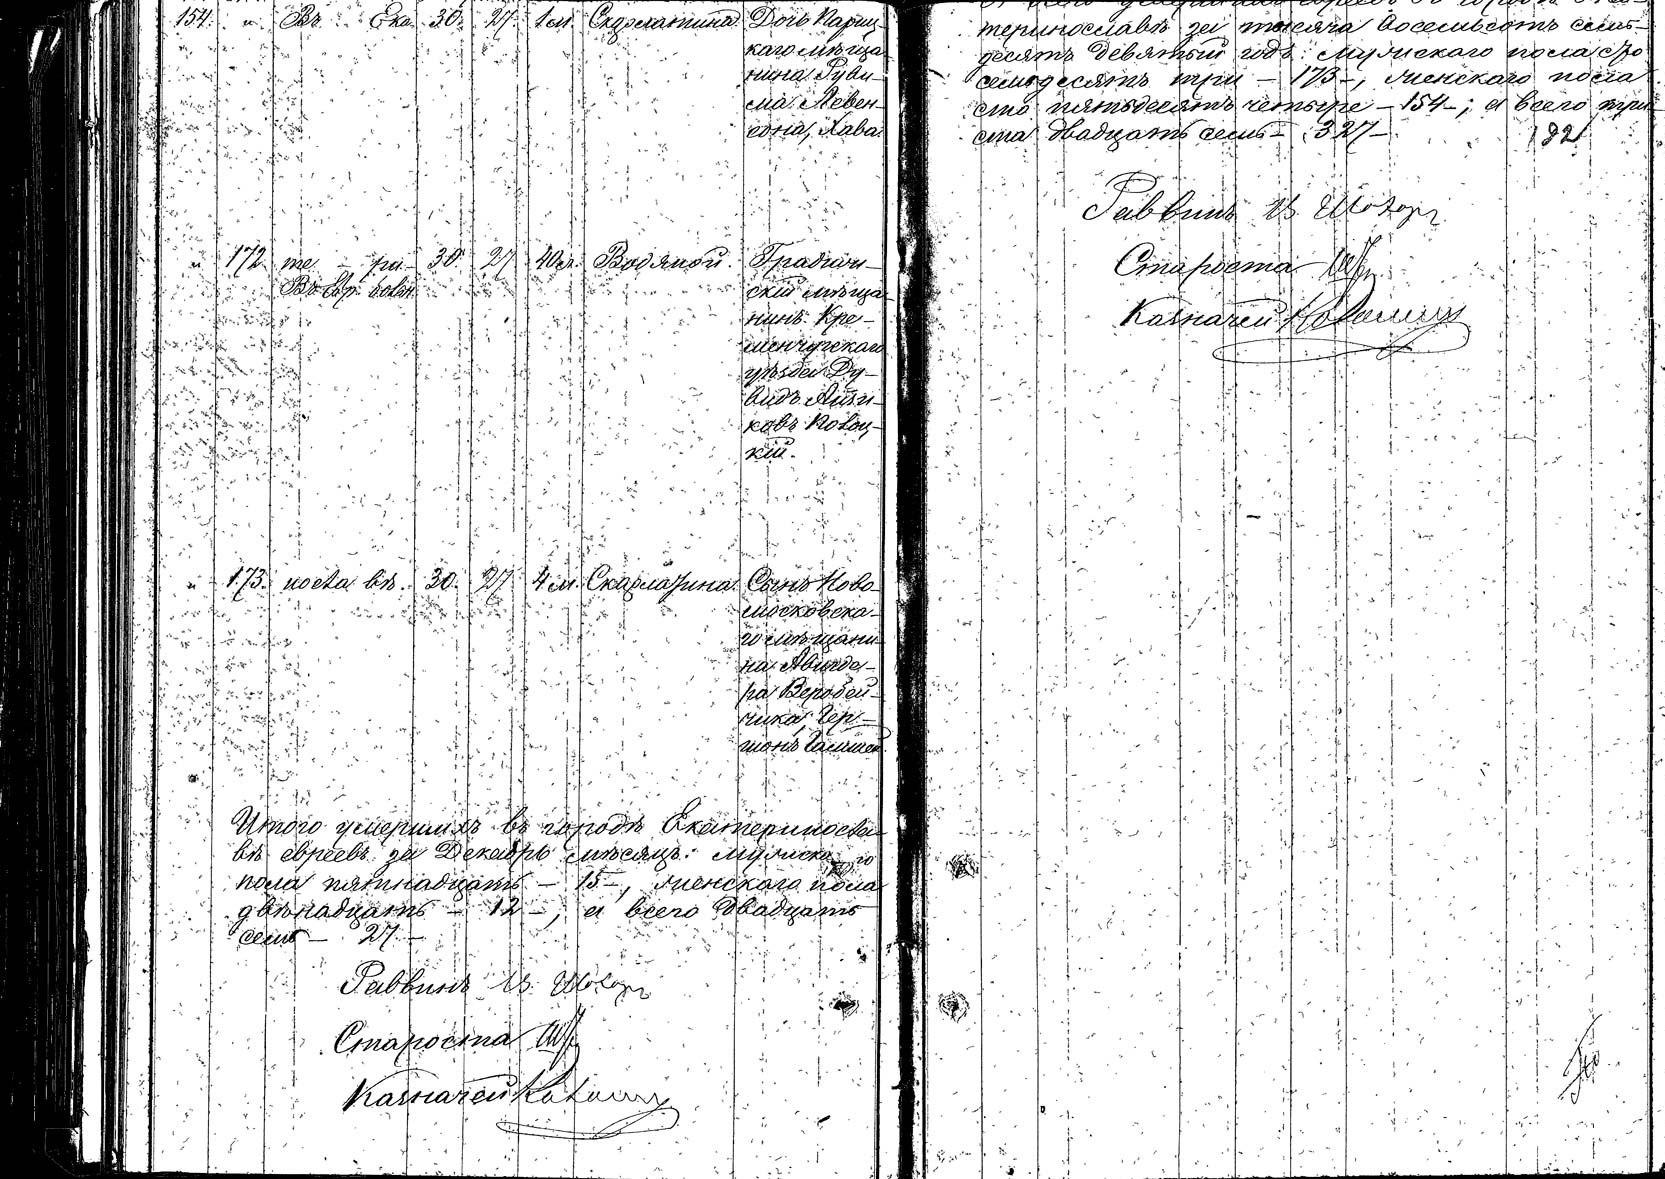 154. " Въ Ека 30. 27 1 м. Скарлатина. Дочь Париц
каго мѣща
нина Руви
ма Левен-
сона, Хава.
" 172 те - ри- 30. 27 40 л. Водяной. Градиж-
Въ Евр. больн. скій мѣща-
нинъ Кре-
менчугскаго
уѣзда Ду-
видъ Айзи-
ковъ
кій.
" 173. послав въ. 30. 27 4 м. Скарлатина. Сынъ Ново-
московска-
го мѣщани-
на Авигдо-
ра Веробей-
чика, Гер-
шонъ
Итого умершихъ въ городѣ Екатеринosла-
вѣ евреевъ за Декабрь мѣсяцъ: мужска го
пола пятнадцать - 15 -, женскаго пола
двѣнадцать - 12 -, а всего двадцать
семь - 27. -
Раввинъ
Староста
Казначей
теринославѣ за тысяча восемьсотъ семь-
десятъ девятый годъ: мужскаго пола сто
семьдесятъ три - 173 -, женскаго пола
сто пятьдесятъ четыре - 154 -; а всего три
ста двадцать семь - 327 -
182
Раввинъ
Староста
Казначей